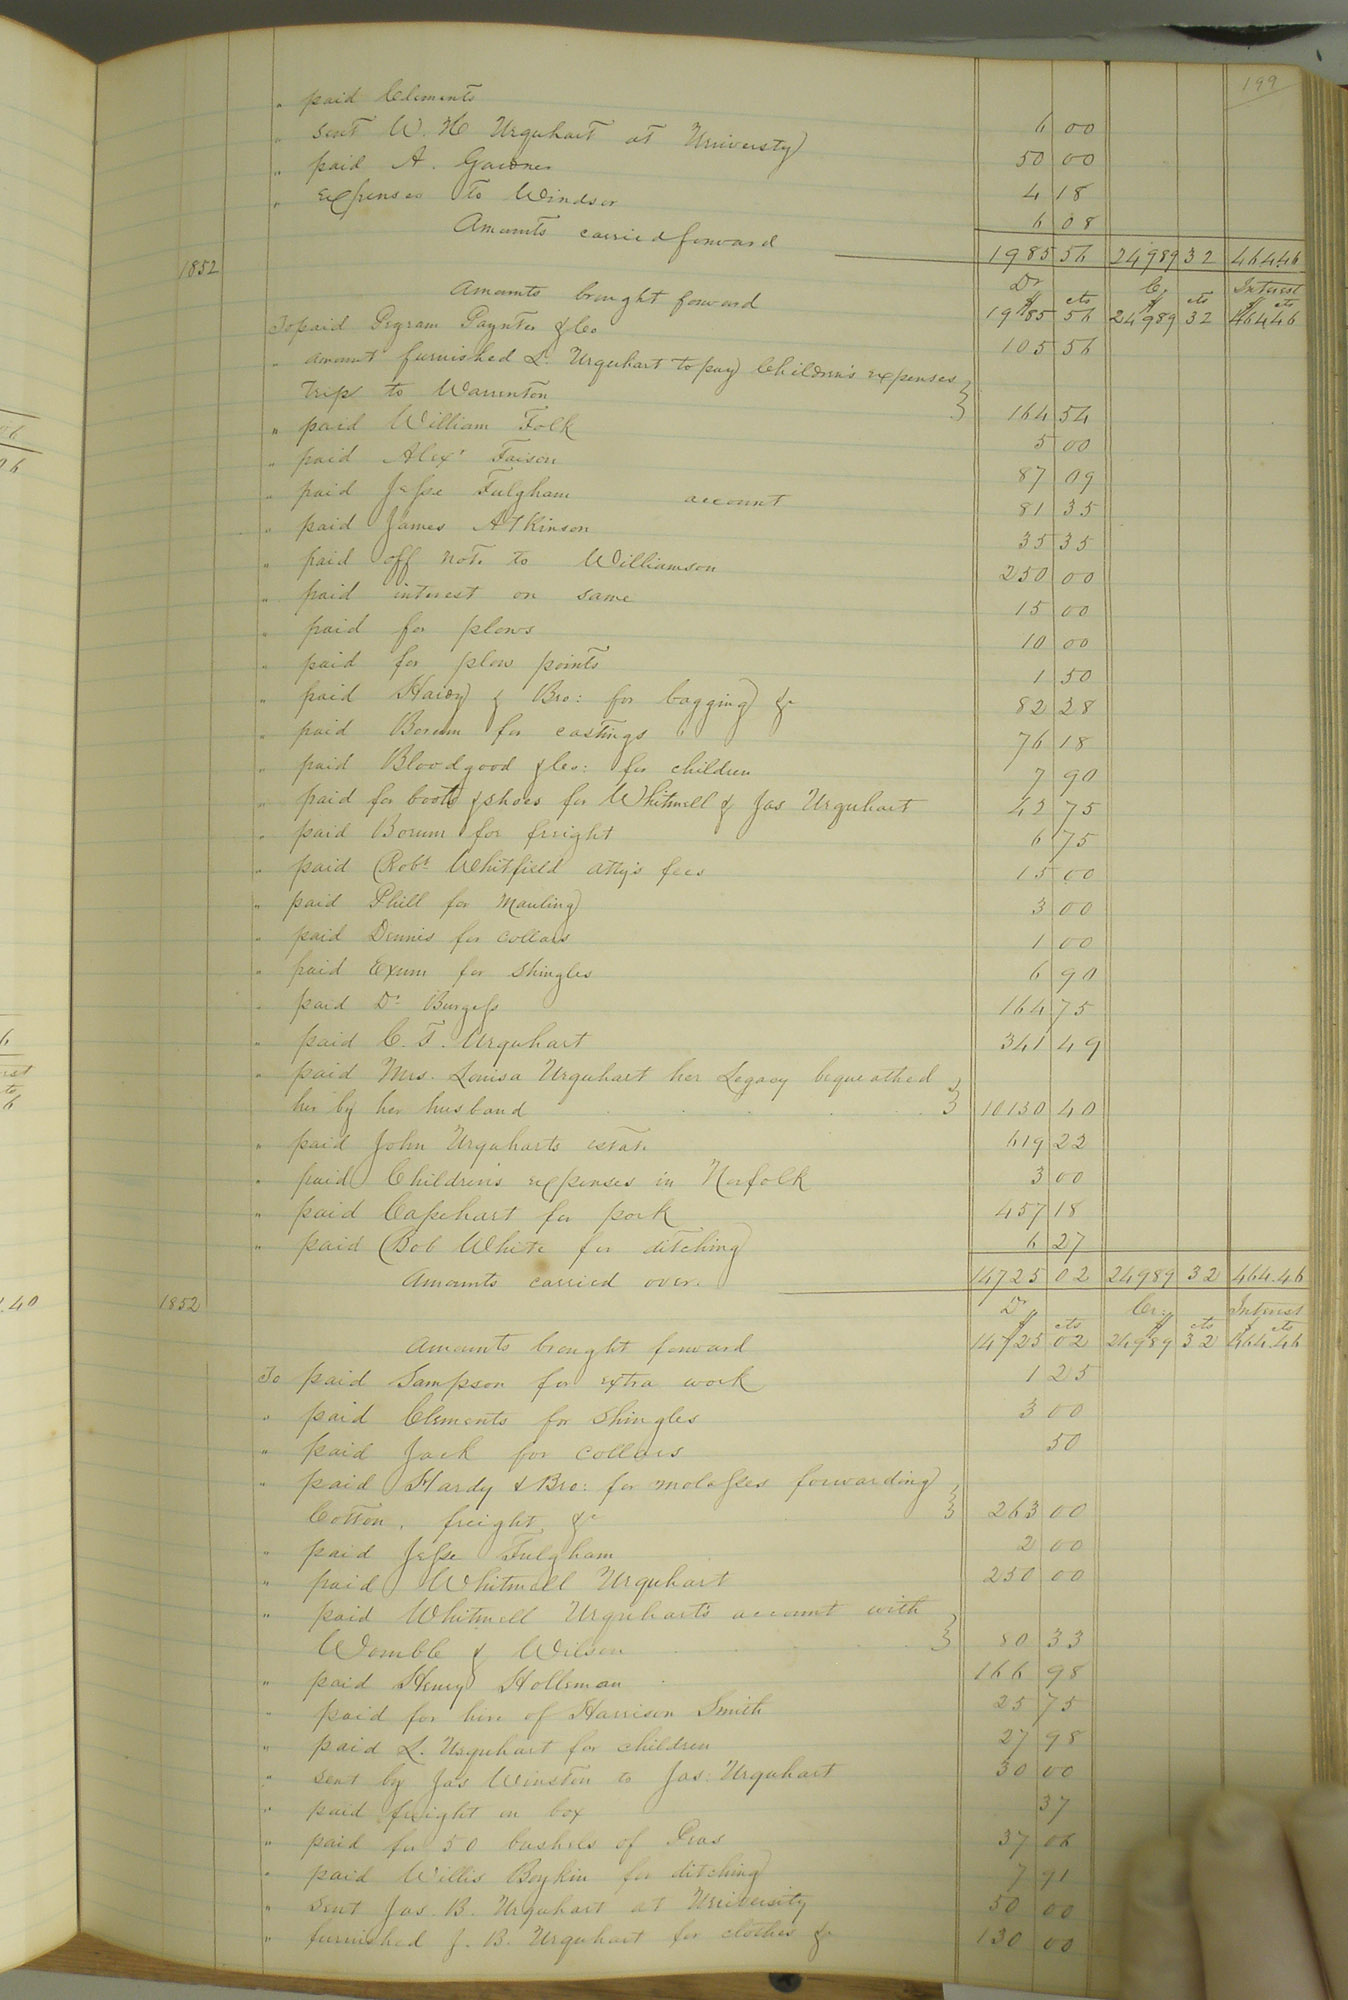 199
" paid Clements 6 00
" sent W. H Urquhart at University 50 00
" paid A. Gardner 4 18
" expenses to Windsor 6 08
Amounts carried forward 1985 56 24989 32 464.46
1852 Dr Cr. Interest
$ cts $ cts $ cts
Amounts brought forward 1985 56 24989 32 464.46
To paid Pegram Paynter & Co 105 56
" amount furnished L. Urquhart to pay Children's expenses
trip to Warrenton 164 54
" paid William Folk 5 00
" paid Alexr Faison 87 09
" paid Jesse Fulgham account 81 35
" paid James Atkinson 35 35
" paid off note to Williamson 250 00
" paid interest on same 15 00
" paid for plows 10 00
" paid for plow points 1 50
" paid Hardy & Bro: for bagging &c 82 28
" paid Borum for castings 76 18
" paid Bloodgood & Co: for children 7 90
" paid for boots & shoes for Whitmell & Jas Urquhart 42 75
" paid Borum for freight 6 75
" paid Robt Whitfield atty's fees 15 00
" paid Phill for Mauling 3 00
" paid Dennis for collars 1 00
" paid Exum for shingles 6 90
" paid Dr Burgess 164 75
" paid C. F. Urquhart 341 49
" paid Mrs. Louisa Urquhart her Legacy bequeathed
her by her husband 10130 40
" paid John Urquharts estate 619 22
" paid Children's expenses in Norfolk 3 00
" paid Capehart for pork 457 18
" paid Bob White for ditching 6 27
Amounts carried over. 14725 02 24989 32 464.46
1852 Dr Cr. Interest
$ cts $ cts $ cts
Amounts brought forward 14725 02 24989 32 464.46
To paid Sampson for extra work 1 25
" paid Clements for shingles 3 00
" paid Jack for collars 50
" paid Hardy & Bro: for molasses forwarding
Cotton, freight &c 263 00
" paid Jesse Fulgham 2 00
" paid Whitmell Urquhart 250 00
" paid Whitmell Urquhart's account with
Womble & Wilson 80 33
" paid Henry Holleman 166 98
" paid for hire of Harrison Smith 25 75
" paid L. Urquhart for children 27 98
" sent by Jas Winston to Jas: Urquhart 30 00
" paid freight on box 37
" paid for 50 bushels of Peas 37 06
" paid Willis Boykin for ditching 7 91
" sent Jas. B. Urquhart at University 50 00
" furnished J. B. Urquhart for clothes &c 130 00